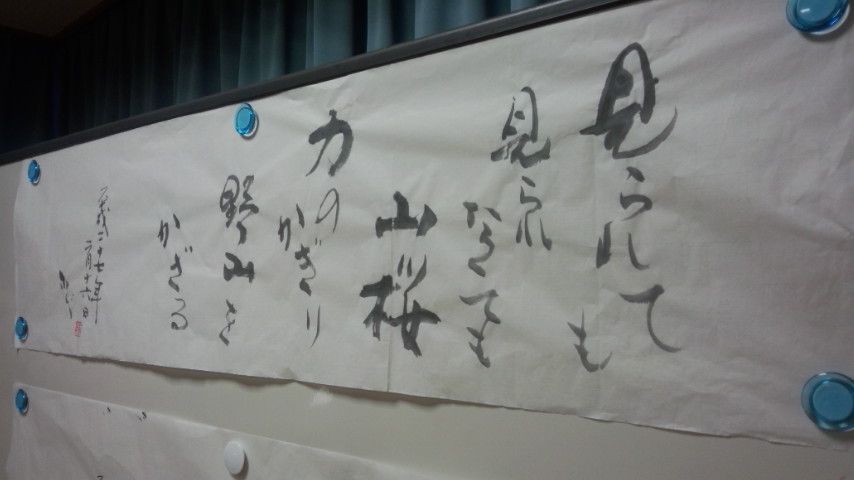 見られても
見られ
なくても
山桜
力の
かぎり
野山を
かざる
平成二十七年
二月十六日